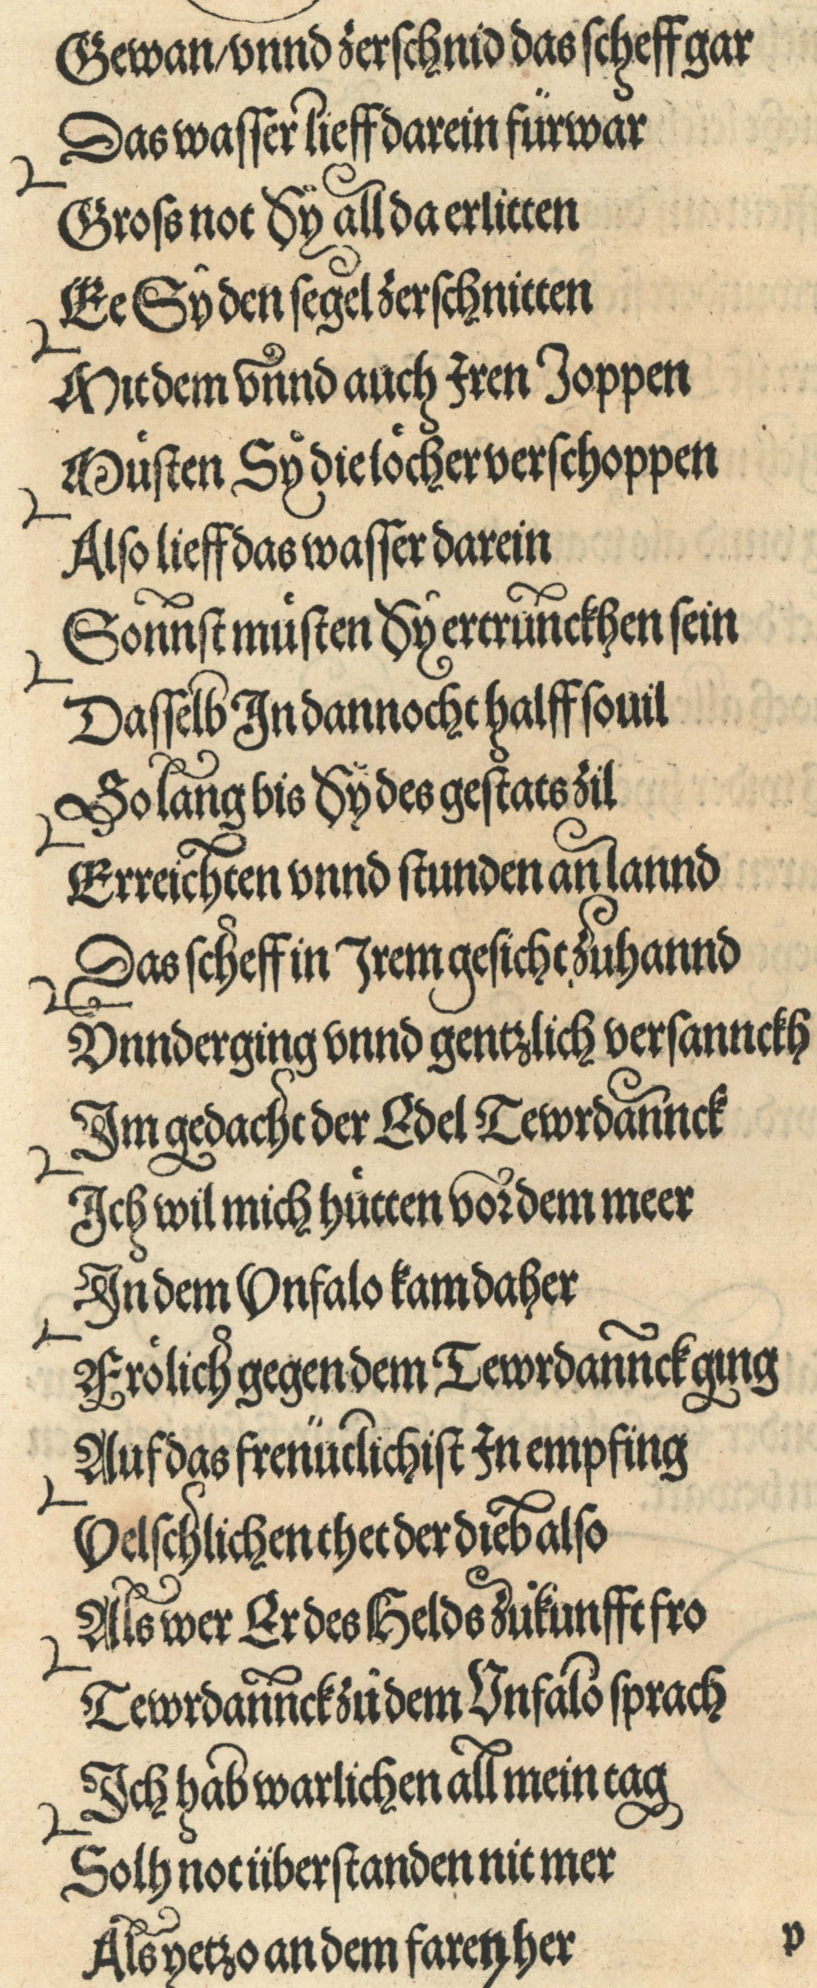 Gewan/vnnd zerschnid das scheff gar
Das wasser lieff darein fürwar
Gross not Sÿ all da erlitten
Ee Sÿ den segel zerschnitten
Mit dem vnnd auch Iren Joppen
Müsten Sÿ die löcher verschoppen
Also lieff das wasser darein
Sonnst müsten Sÿ ertrunckhen sein
Dasselb In dannocht halff souil
So lang bis Sÿ des gestats zil
Erreichten vnnd stunden an lannd
Das scheff in Irem gesicht zuhannd
Vnnderging vnnd gentzlich versannckh
Im gedacht der Edel Tewrdannck
Ich wil mich hütten vor dem meer
In dem Vnfalo kam daher
Frölich gegen dem Tewrdannck ging
Auf das freüntlichist In empfing
Velschlichen thet der dieb also
Als wer Er des Helds zůkunfft fro
Tewrdannck zů dem Vnfalo sprach
Ich hab warlichen all mein tag
Solh not überstanden nit mer
Als yetzo an dem faren her
p